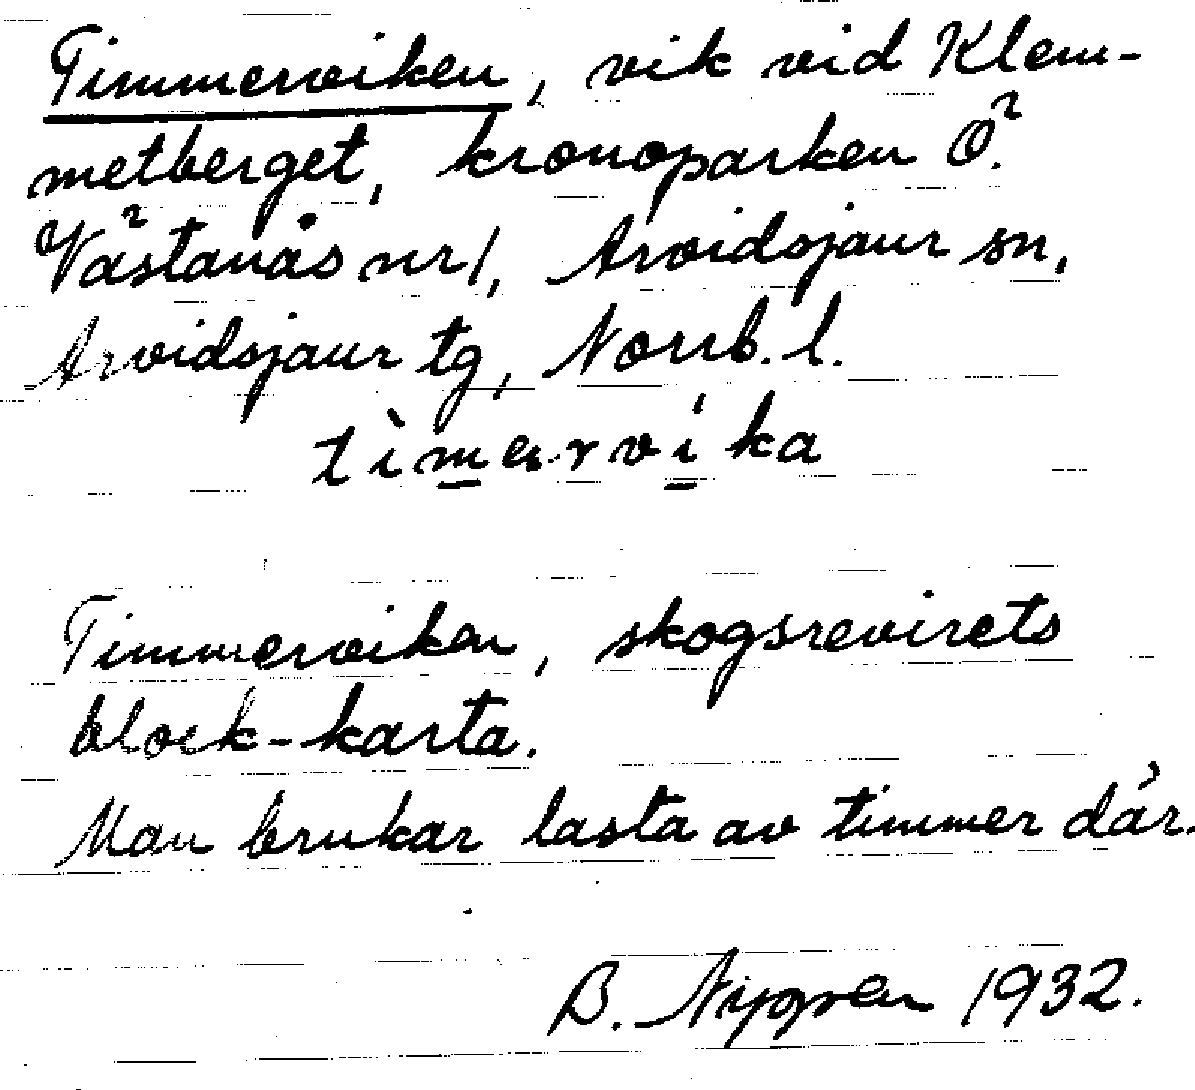 Timmerviken, vik vid Klem-
metberget, kronoparken Ö.
Västanås nr 1, Arvidsjaur sn,
Arvidsjaur tg, Norrb. l.
tìmervíka
Timmerviken, skogsrevirets
block-karta.
Man brukar lasta av timmer där.
B. Nygren 1932.